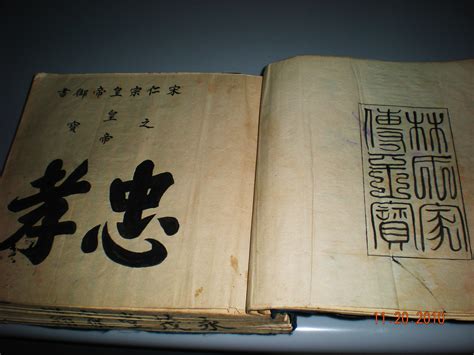 宋仁宗皇帝御書
皇帝之寶
忠孝
林家
傳寶
11 20 2010